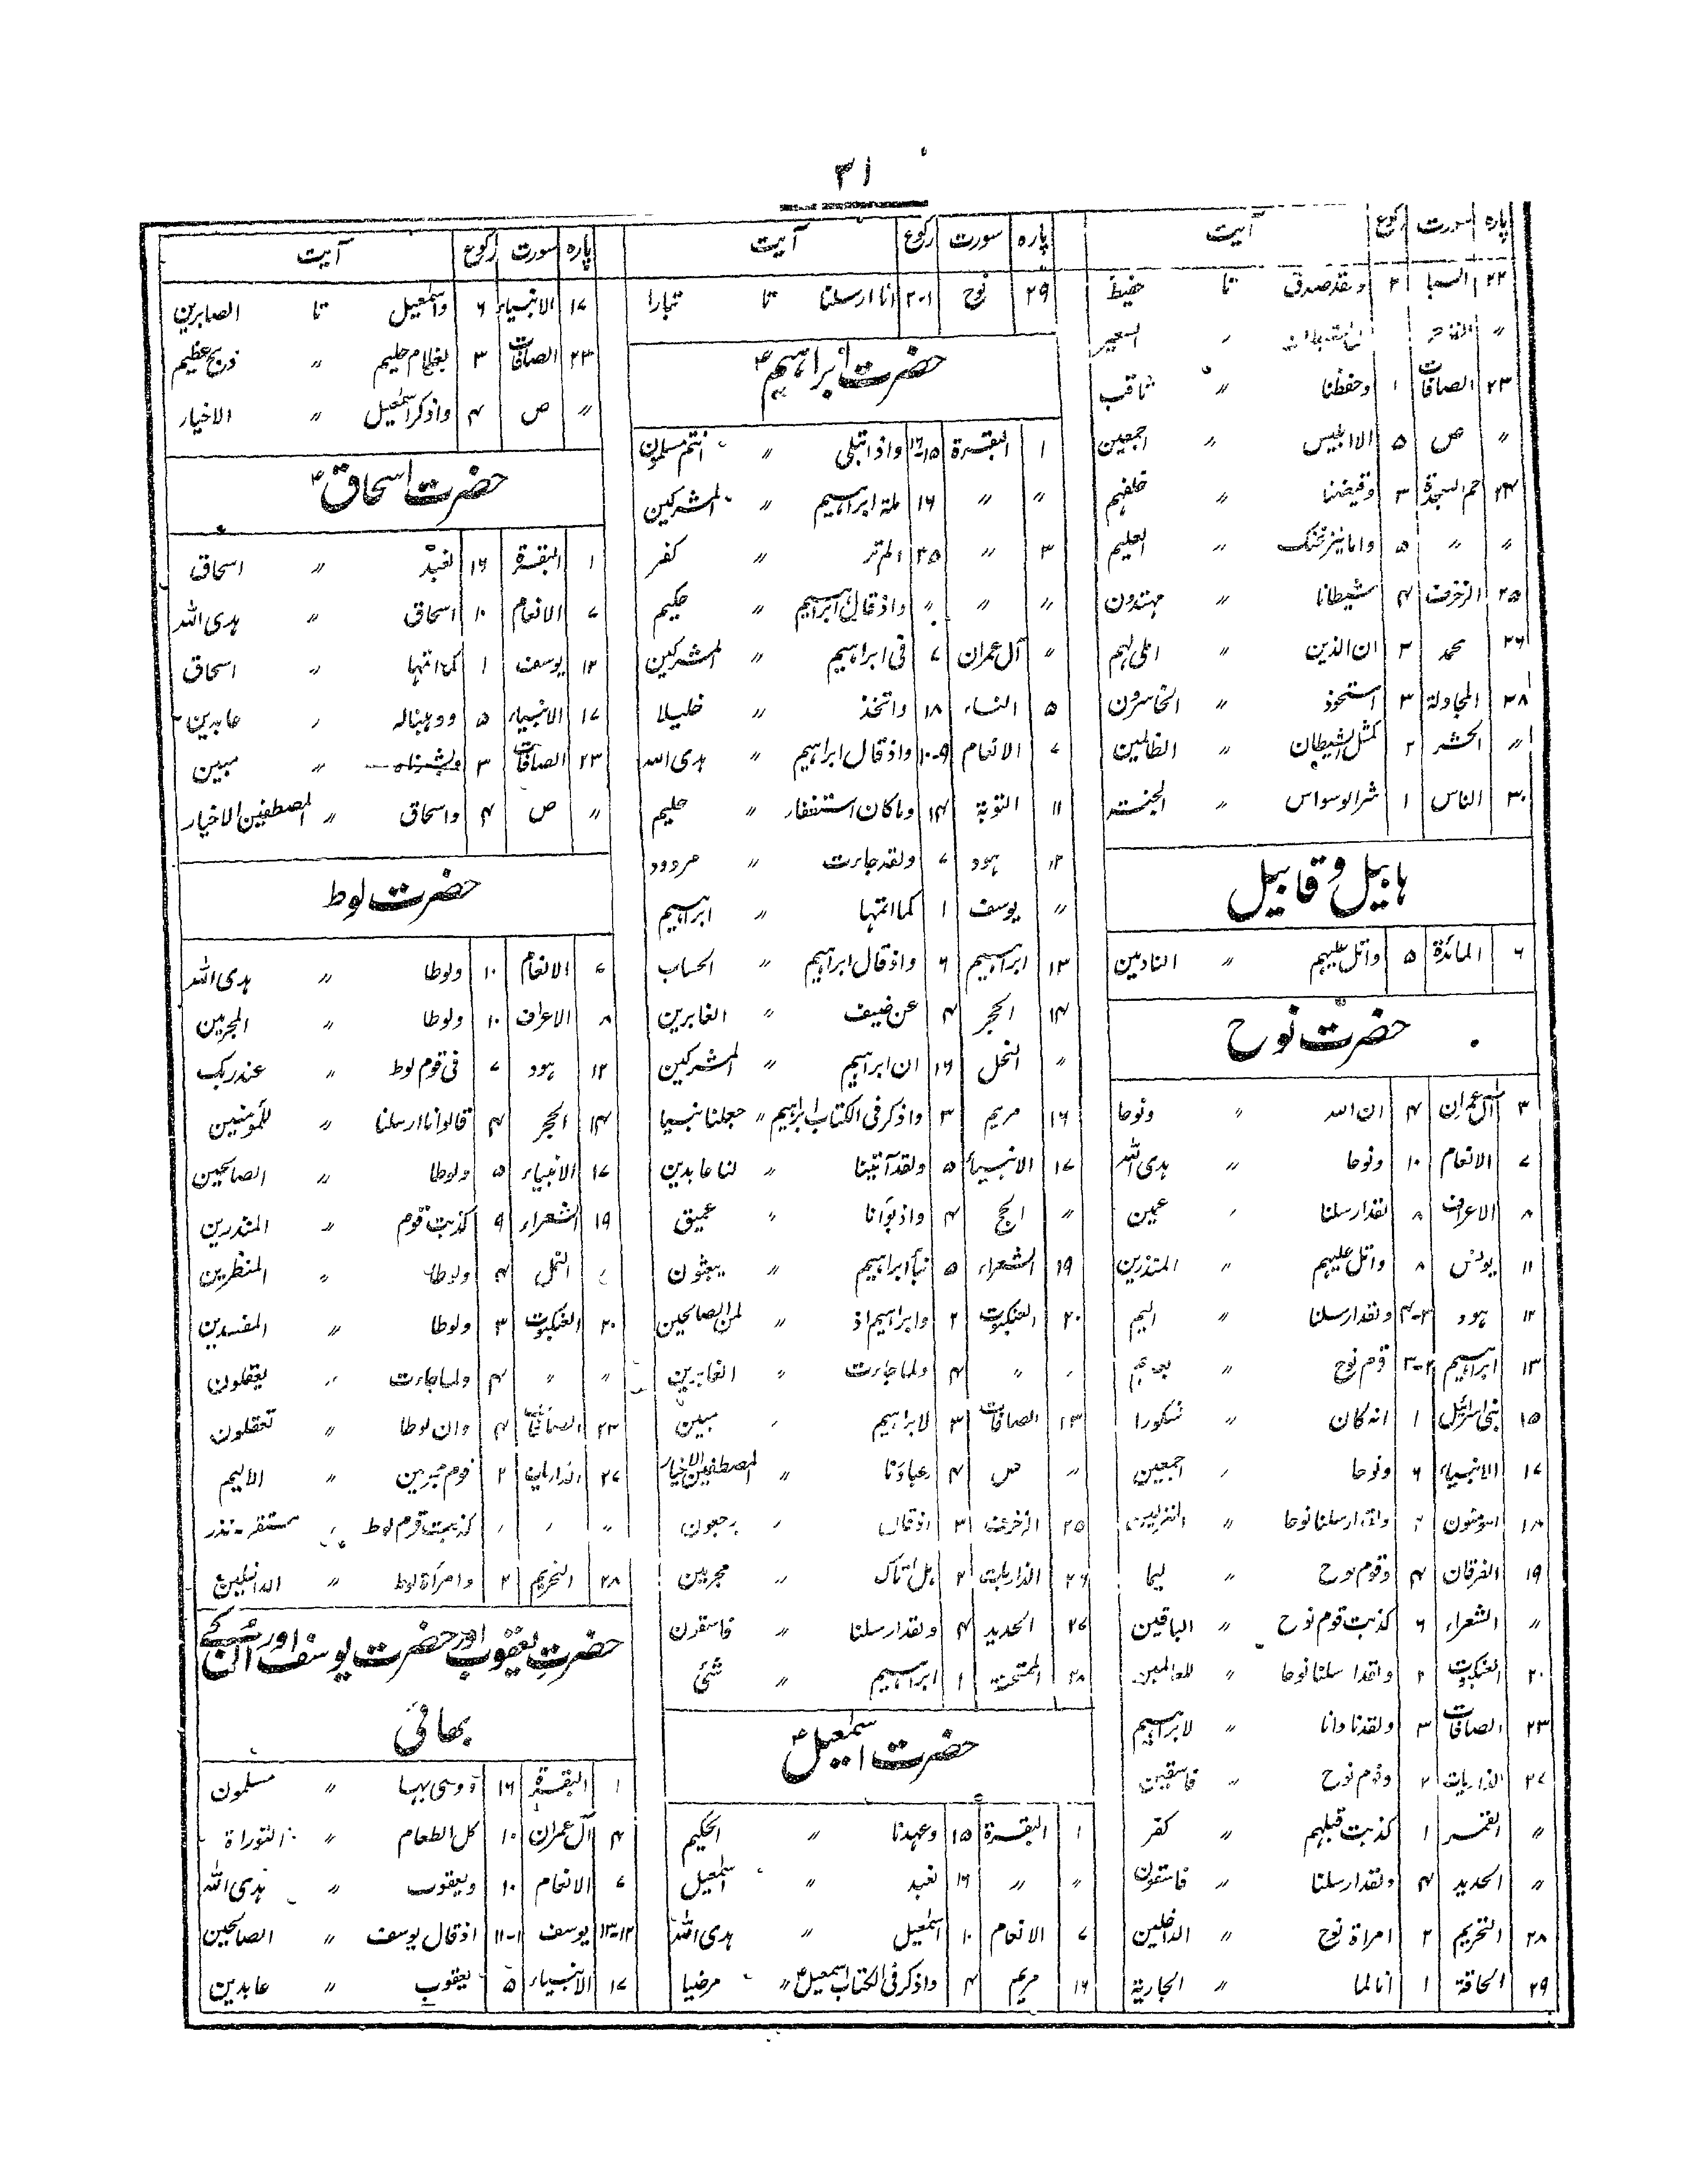 ۳۱
پارہ سورت رکوع آیت
۲۲ السبا ۲ ولقد صدق تا حفیظ
〃 السعیر
۲۳ الصافات ۱ وحفظنا 〃 ثاقب
〃 ص ۵ الا ابلیس 〃 اجمعین
۲۴ حم السجدة ۳ وقیضنا 〃 خلفہم
〃 〃 ۵ واما ینزغنک 〃 العلیم
۲۵ الزخرف ۴ شیطانا 〃 مہتدون
۲۶ محمد ۳ ان الذین 〃 املی لہم
۲۸ المجادلة ۳ استحوذ 〃 الخاسرون
〃 الحشر ۲ کمثل الشیطان 〃 الظالمین
۳۰ الناس ۱ شر الوسواس 〃 الجنة
ہابیل و قابیل
۶ المائدة ۵ واتل علیہم 〃 النادمین
حضرت نوح
۳ آل عمران ۴ ان اللہ 〃 ونوحا
۷ الانعام ۱۰ ونوحا 〃 ہدی اللہ
۸ الاعراف ۸ لقد ارسلنا 〃 عمین
۱۱ یونس ۸ واتل علیہم 〃 المنذرین
۱۲ ہود ۳-۴ ولقد ارسلنا 〃 الیم
۱۳ ابراہیم ۲-۳ قوم نوح 〃
۱۵ بنی اسرائیل ۱ انہ کان 〃 شکورا
۱۷ الانبیاء ۶ ونوحا 〃 اجمعین
۱۸ المومنون ۲ ولقد ارسلنا نوحا 〃
۱۹ الفرقان ۴ وقوم نوح 〃 الیما
〃 الشعراء ۶ کذبت قوم نوح 〃 الباقین
۲۰ العنکبوت ۲ ولقد ارسلنا نوحا 〃 للعالمین
۲۳ الصافات ۳ ولقد نادانا 〃 لابراہیم
۲۷ الذاریات ۲ وقوم نوح 〃 فاسقین
〃 القمر ۱ کذبت قبلہم 〃 کفر
〃 الحدید ۴ ولقد ارسلنا 〃 فاسقون
۲۸ التحریم ۲ امراة نوح 〃 الداخلین
۲۹ الحاقة ۱ انا لما 〃 الجاریة
پارہ سورت رکوع آیت
۲۹ نوح ۱-۲ انا ارسلنا تا تبارا
حضرت ابراہیمؑ
۱ البقرة ۱۵-۱۶ واذ ابتلی 〃 انتم مسلمون
〃 〃 ۱۶ ملة ابراہیم 〃 المشرکین
۳ 〃 ۳۵ الم تر 〃 کفر
〃 〃 〃 واذ قال ابراہیم 〃 حکیم
〃 آل عمران ۷ فی ابراہیم 〃 المشرکین
۵ النساء ۱۸ واتخذ 〃 خلیلا
۷ الانعام ۹-۱۰ واذ قال ابراہیم 〃 ہدی اللہ
۱۱ التوبة ۱۴ وما کان استغفار 〃 حلیم
۱۲ ہود ۷ ولقد جاءت 〃 مردود
〃 یوسف ۱ کما اتمہا 〃 ابراہیم
۱۳ ابراہیم ۶ واذ قال ابراہیم 〃 الحساب
۱۴ الحجر ۴ عن ضیف 〃 الغابرین
〃 النحل ۱۶ ان ابراہیم 〃 المشرکین
۱۶ مریم ۳ واذکر فی الکتاب ابراہیم 〃 جعلنا نبیا
۱۷ الانبیاء ۵ ولقد آتینا 〃 لنا عابدین
〃 الحج ۴ واذ بوانا 〃 عمیق
۱۹ الشعراء ۵ نبأ ابراہیم 〃 یبعثون
۲۰ العنکبوت ۲ وابراہیم اذ 〃 لمن الصالحین
〃 〃 ۴ ولما جاءت 〃 الغابرین
۲۳ الصافات ۳ لابراہیم 〃 مبین
〃 ص ۴ عبادنا 〃 المصطفین الاخیار
۲۵ الزخرف ۳ اذ قال 〃 یرجعون
۲۶ الذاریات ۲ ہل اتاک 〃 مجرمین
۲۷ الحدید ۴ ولقد ارسلنا 〃 فاسقون
۲۸ الممتحنة ۱ ابراہیم 〃 شئ
حضرت اسمٰعیلؑ
۱ البقرة ۱۵ وعہدنا 〃 الحکیم
〃 〃 ۱۶ نعبد 〃 اسمٰعیل
۷ الانعام ۱۰ اسمٰعیل 〃 ہدی اللہ
۱۶ مریم ۴ واذکر فی الکتاب اسمٰعیل 〃 مرضیا
پارہ سورت رکوع آیت
۱۷ الانبیاء ۶ واسمٰعیل تا الصابرین
۲۳ الصافات ۳ بغلام حلیم 〃 ذبح عظیم
〃 ص ۴ واذکر اسمٰعیل 〃 الاخیار
حضرت اسحاقؑ
۱ البقرة ۱۶ نعبد 〃 اسحاق
۷ الانعام ۱۰ اسحاق 〃 ہدی اللہ
۱۲ یوسف ۱ کما اتمہا 〃 اسحاق
۱۷ الانبیاء ۵ ووہبنا لہ 〃 عابدین
۲۳ الصافات ۳ وبشرناہ 〃 مبین
〃 ص ۴ واسحاق 〃 المصطفین الاخیار
حضرت لوط
۷ الانعام ۱۰ ولوطا 〃 ہدی اللہ
۸ الاعراف ۱۰ ولوطا 〃 المجرمین
۱۲ ہود ۷ فی قوم لوط 〃 عند ربک
۱۴ الحجر ۴ قالوا انا ارسلنا 〃 للمومنین
۱۷ الانبیاء ۵ ولوطا 〃 الصالحین
۱۹ الشعراء ۹ کذبت قوم 〃 المنذرین
〃 النمل ۴ ولوطا 〃 المنظرین
۲۰ العنکبوت ۳ ولوطا 〃 المفسدین
〃 〃 ۴ ولما جاءت 〃 یعقلون
۲۳ الصافات ۴ وان لوطا 〃 تعقلون
۲۷ الذاریات ۲ قوم مجرمین 〃 الالیم
〃 〃 〃 کذبت قوم لوط 〃 مستقر-نذر
۲۸ التحریم ۲ وامرأة لوط 〃 الداخلین
حضرت یعقوب اور حضرت یوسف اور اُن کے
بھائی
۱ البقرة ۱۶ ووصی بہا 〃 مسلمون
۴ آل عمران ۱۰ کل الطعام 〃 التوراة
۷ الانعام ۱۰ ویعقوب 〃 ہدی اللہ
۱۲-۱۳ یوسف ۱-۱۱ اذ قال یوسف 〃 الصالحین
۱۷ الانبیاء ۵ یعقوب 〃 عابدین